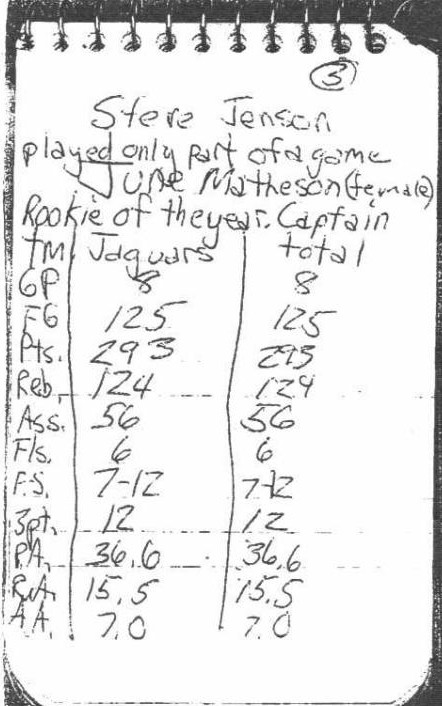 3
Steve Jenson
played only part of a game
June Matheson (female)
Rookie of the year. Captain
TM. Jaguars total
GP 8 8
FG 125 125
Pts. 293 293
Reb. 124 124
Ass. 56 56
Fls. 6 6
F.S. 7-12 7-12
3pt. 12 12
P.A. 36.6 36.6
R.A. 15.5 15.5
A.A. 7.0 7.0